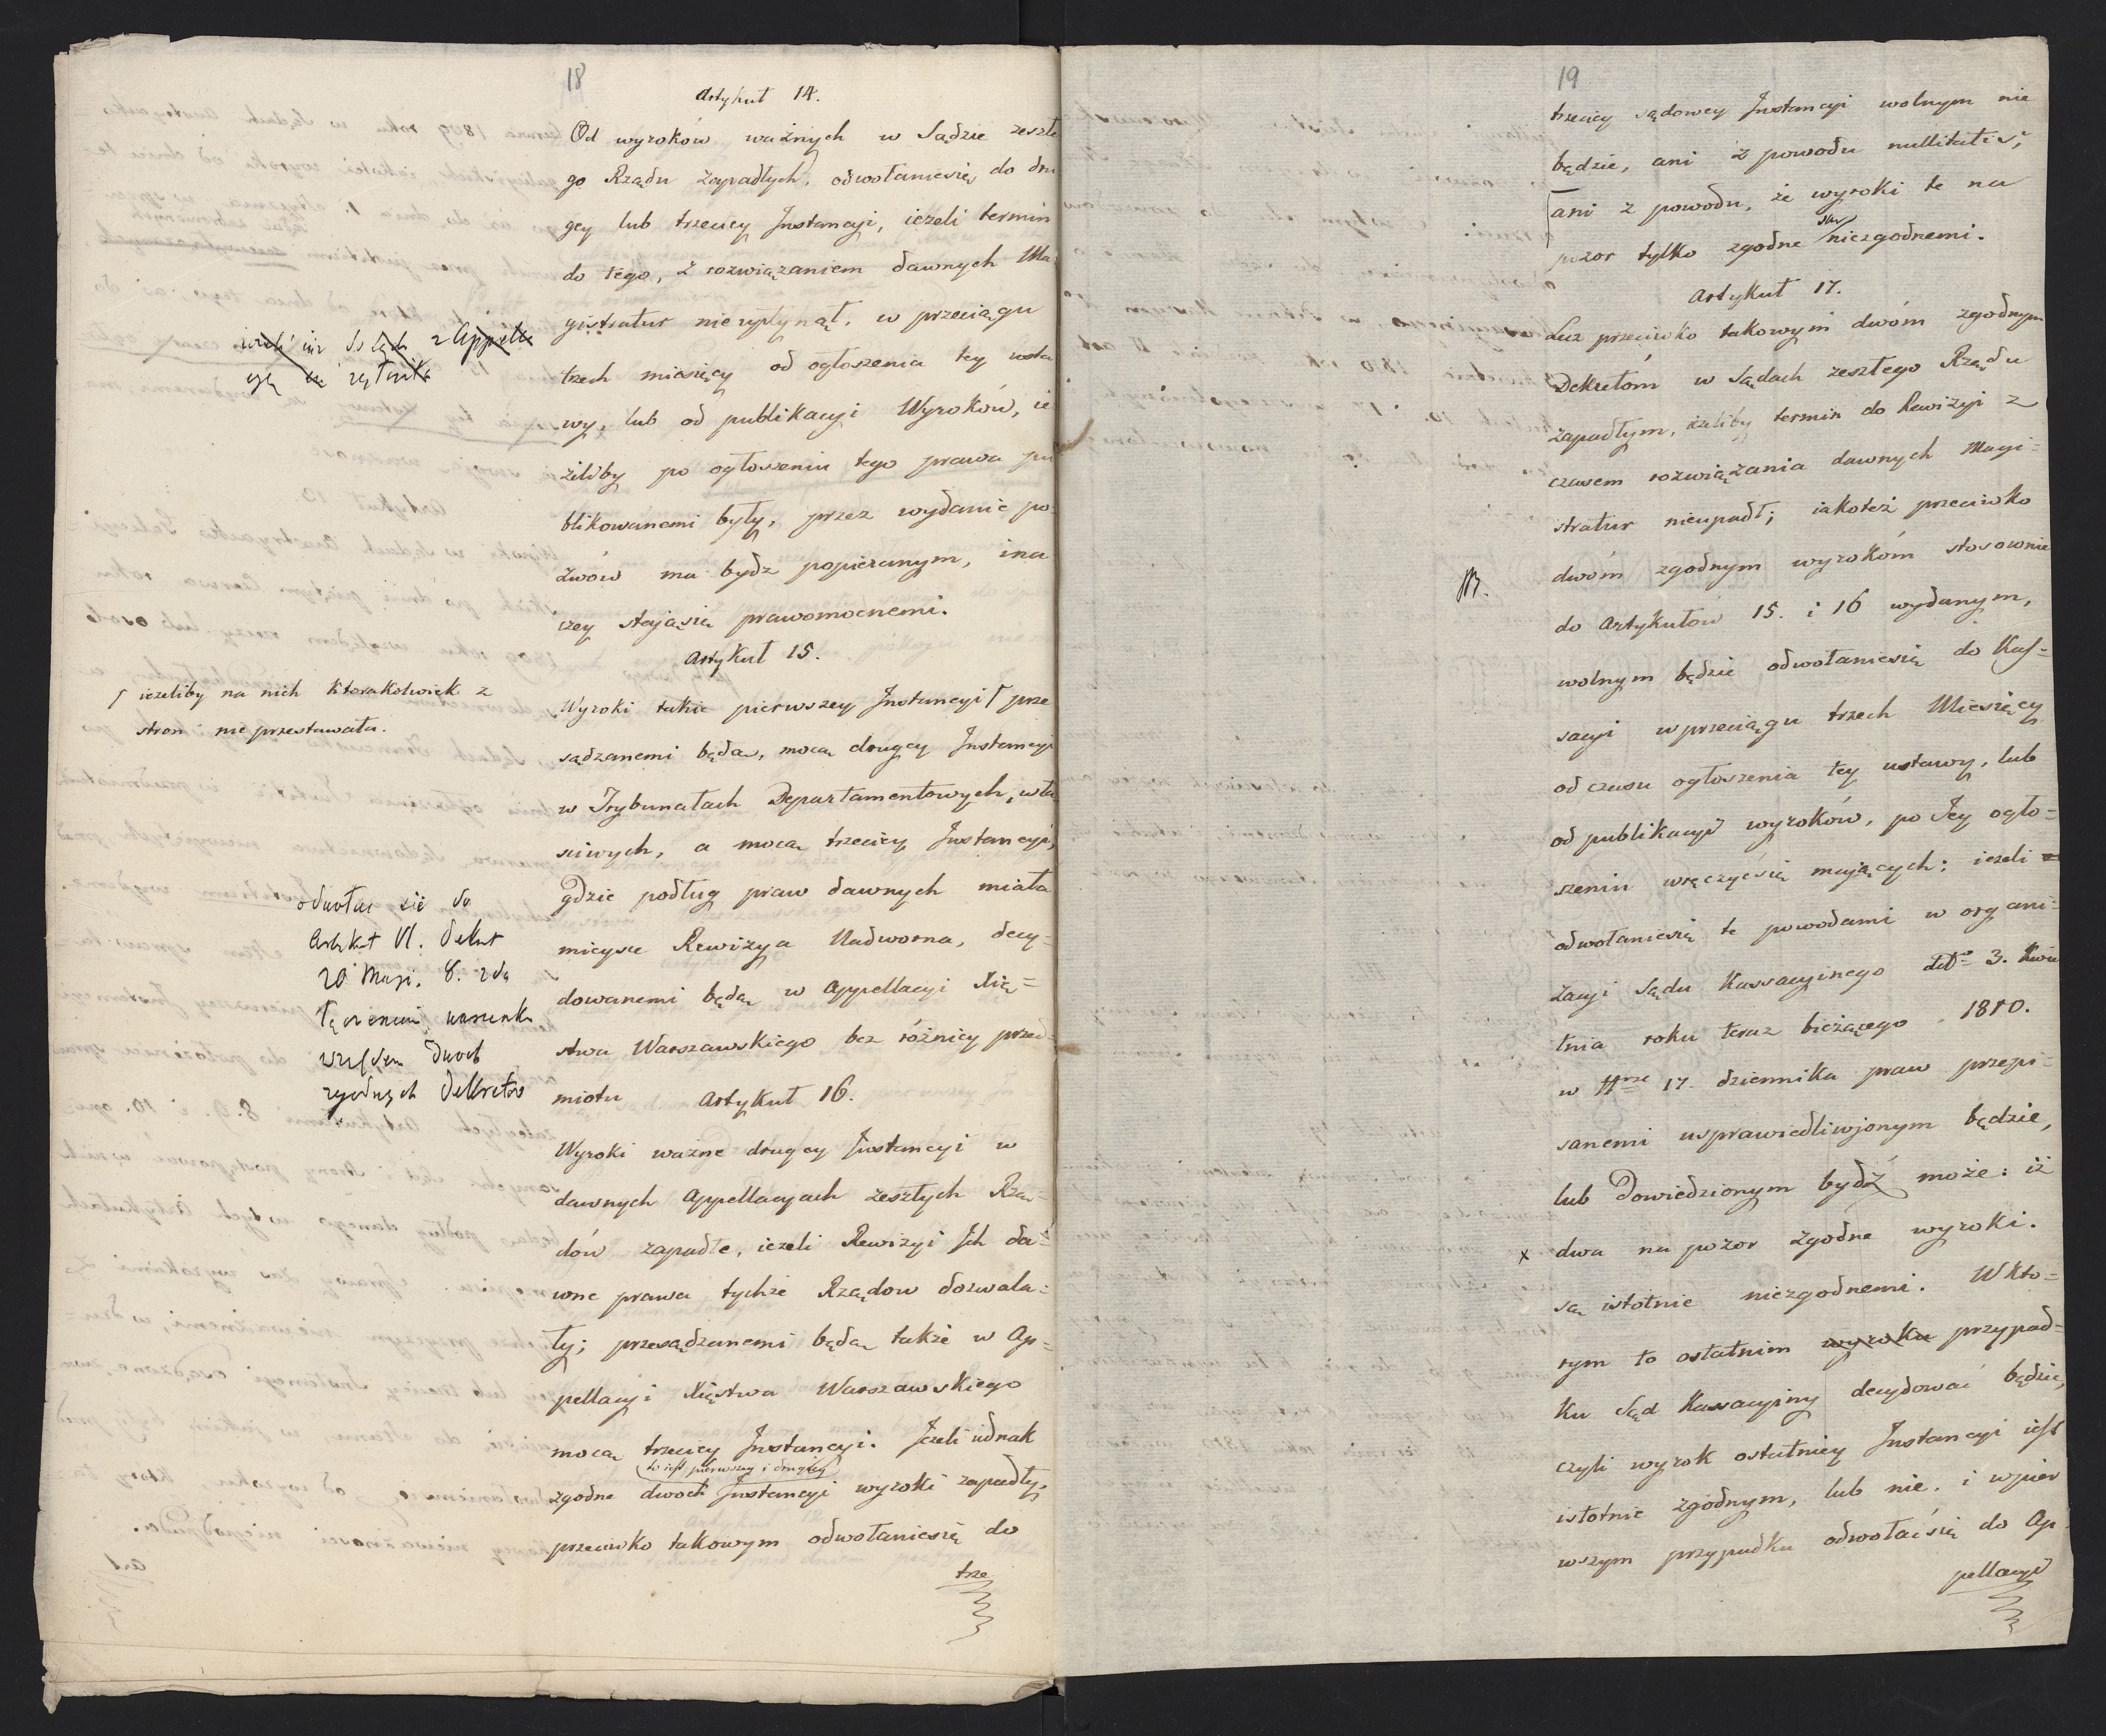 18
Artykuł 14.
Od wyroków ważnych w Sądzie zeszłe
go Rządu zapadłych, odwołaniesię do dru
giey lub trzeciey Instancyi, ieżeli termin
do tego, z rozwiązaniem dawnych Ma
gistratur nieupłynął, w przeciągu
trzech miesięcy od ogłoszenia tey usta
wy, lub od publikacyi Wyroków, ie
żeliby po ogłoszeniu tego prawa pu
blikowanemi były, przez wydanie po=
zwów ma bydz popieranym, ina
czey stająsię prawomocnemi.
Artykuł 15.
Wyroki takie pierwszey Instancyi ſ prze
sądzanemi będą, mocą drugey Instancyi
w Trybunałach Departamentowych, wła
sciwych, a mocą trzeciey Instancyi,
Gdzie podług praw dawnych miała
mieysce Rewizya Nadworna, decy=
dowanemi będą w Appellacyi Xię=
stwa Warszawskiego bez różnicy przed=
miotu
Artykuł 16.
Wyroki ważne drugey Instancyi w
dawnych Appellacyach zeszłych Rzą=
dów zapadłe, ieżeli Rewizyi Ich da=
wne prawa tychże Rządow dozwala=
ły; przesądzanemi będą także w Ap=
pellacyi Xięstwa Warszawskiego
mocą trzeciey Instancyi. Jeżeli iednak
to iest pierwszey i drugiey
zgodne dwóch Instancyi wyroki zapadły,
przeciwko takowym odwołaniesię do
trze
ſ ieżeliby na nich którakolwiek z
stron nie przestawała.
odwołać się do
Artykuł VI. Dekret
20 Maji. 8. z do
łączeniem warunku
względem dwoch
zgodnych Dekretów
19
trzeciey sądowey Instancyi wolnym nie
będzie, ani z powodu nullitatis,
ani z powodu, że wyroki te na
są
pozor tylko zgodne niezgodnemi.
Artykuł 17.
Lecz przeciwko takowym dwóm zgodnym
Dekretóm w Sądach zeszłego Rządu
zapadłym, ieżeliby termin do Rewizyi z
czasem rozwiązania dawnych Magi=
stratur nieupadł; iakoteż przeciwko
dwóm zgodnym wyrokóm stosownie
do Artykułów 15. i 16 wydanym,
wolnym będzie odwołaniesię do Kas=
sacyi w przeciągu trzech Miesięcy
od czasu ogłoszenia tey ustawy, lub
od publikacyi wyroków, po Jey ogło=
szeniu wręczyćsię maiących: ieżeli
odwołaniesię te powodami w organi=
zacyi Sądu Kassacyinego ddto 3. Kwie
tnia roku teraz bieżącego 1810.
w Nrze 17. dziennika praw przepi=
sanemi usprawiedliwjonym będzie,
lub Dowiedzionym bydź może: iż
x dwa na pozor zgodne wyroki.
są istotnie niezgodnemi. W któ=
rym to ostatnim wyroku przypad=
ku Sąd Kassacyiny decydować będzie,
czyli wyrok ostatniey Instancyi iest
istotnie zgodnym, lub nie. i w pier
wszym przypadku odwołaćsię do Ap
pellacyi